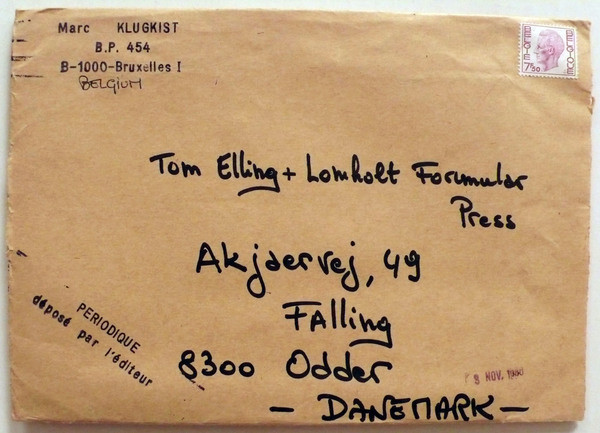 Marc KLUGKIST
B.P. 454
B-1000-Bruxelles I
BELGIUM
BELGIE-BELGIQUE
7F50
Tom Elling + Lomholt Formular
Press
Akjaervej, 49
FAlling
8300 Odder
— DANEMARK —
PERIODIQUE
déposé par l'éditeur
NOV. 1980